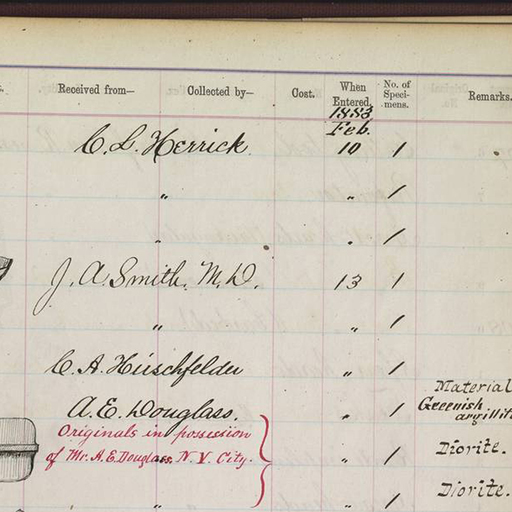 Received from— Collected by— Cost. When Entered. No. of Speci- mens. Remarks.
1883
Feb.
C. L. Herrick. 10 1
" " 1
" " 1
J. A. Smith, M. D. 13 1
" " 1
C. A. Hirschfelder " 1
Material
A. E. Douglass. " 1 Greenish
argillit
Originals in possession
of Mr. A. E. Douglass, N. Y. City. " 1 Diorite.
" " 1 Diorite.